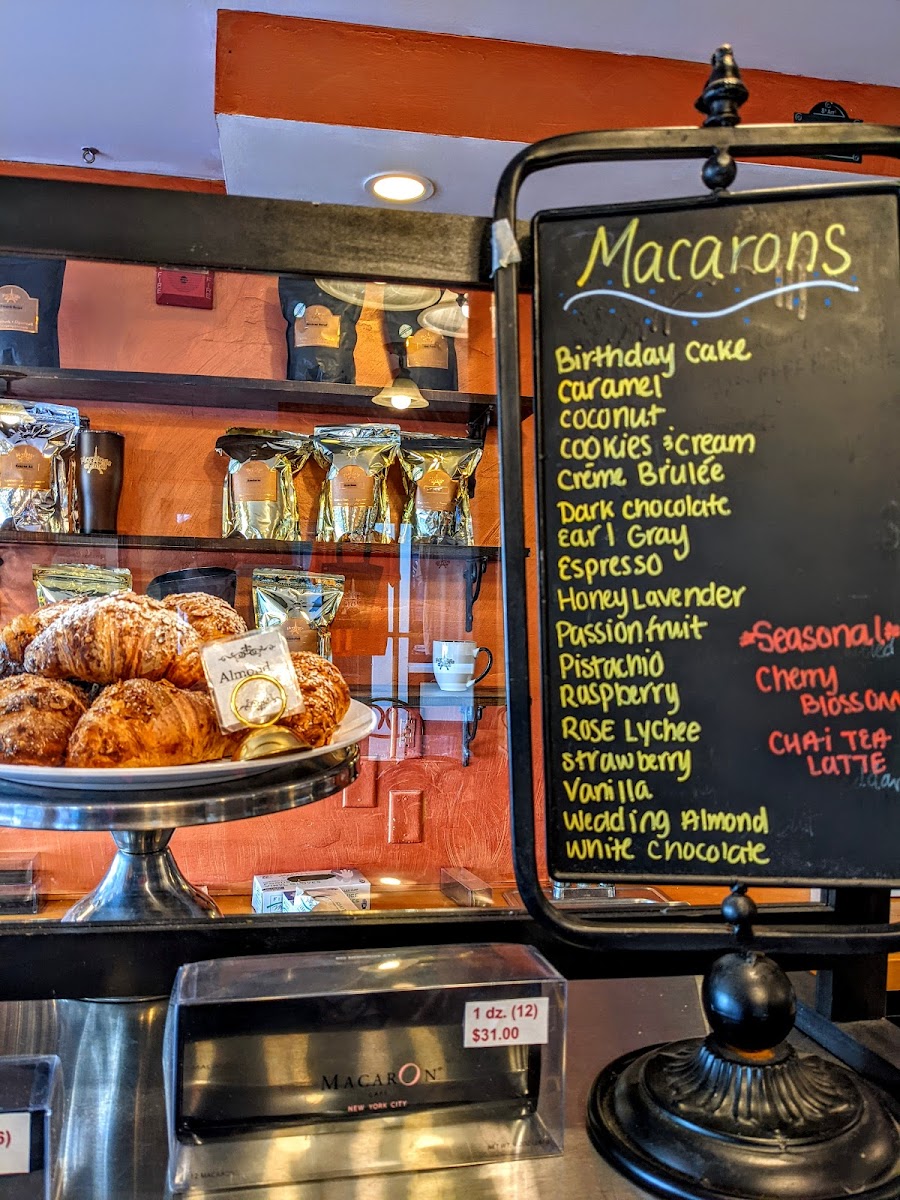 Macarons
Birthday Cake
Caramel
Coconut
Cookies & Cream
Créme Brulée
Dark Chocolate
Earl Gray
Espresso
Honey Lavender
Passionfruit
Pistachio
Raspberry
Rose Lychee
Strawberry
Vanilla
Wedding Almond
White Chocolate
*Seasonal*
Cherry
Blossom
Chai Tea
Latte
Almond
1 dz. (12)
$31.00
MACARON
NEW YORK CITY
12 MACARONS
6)